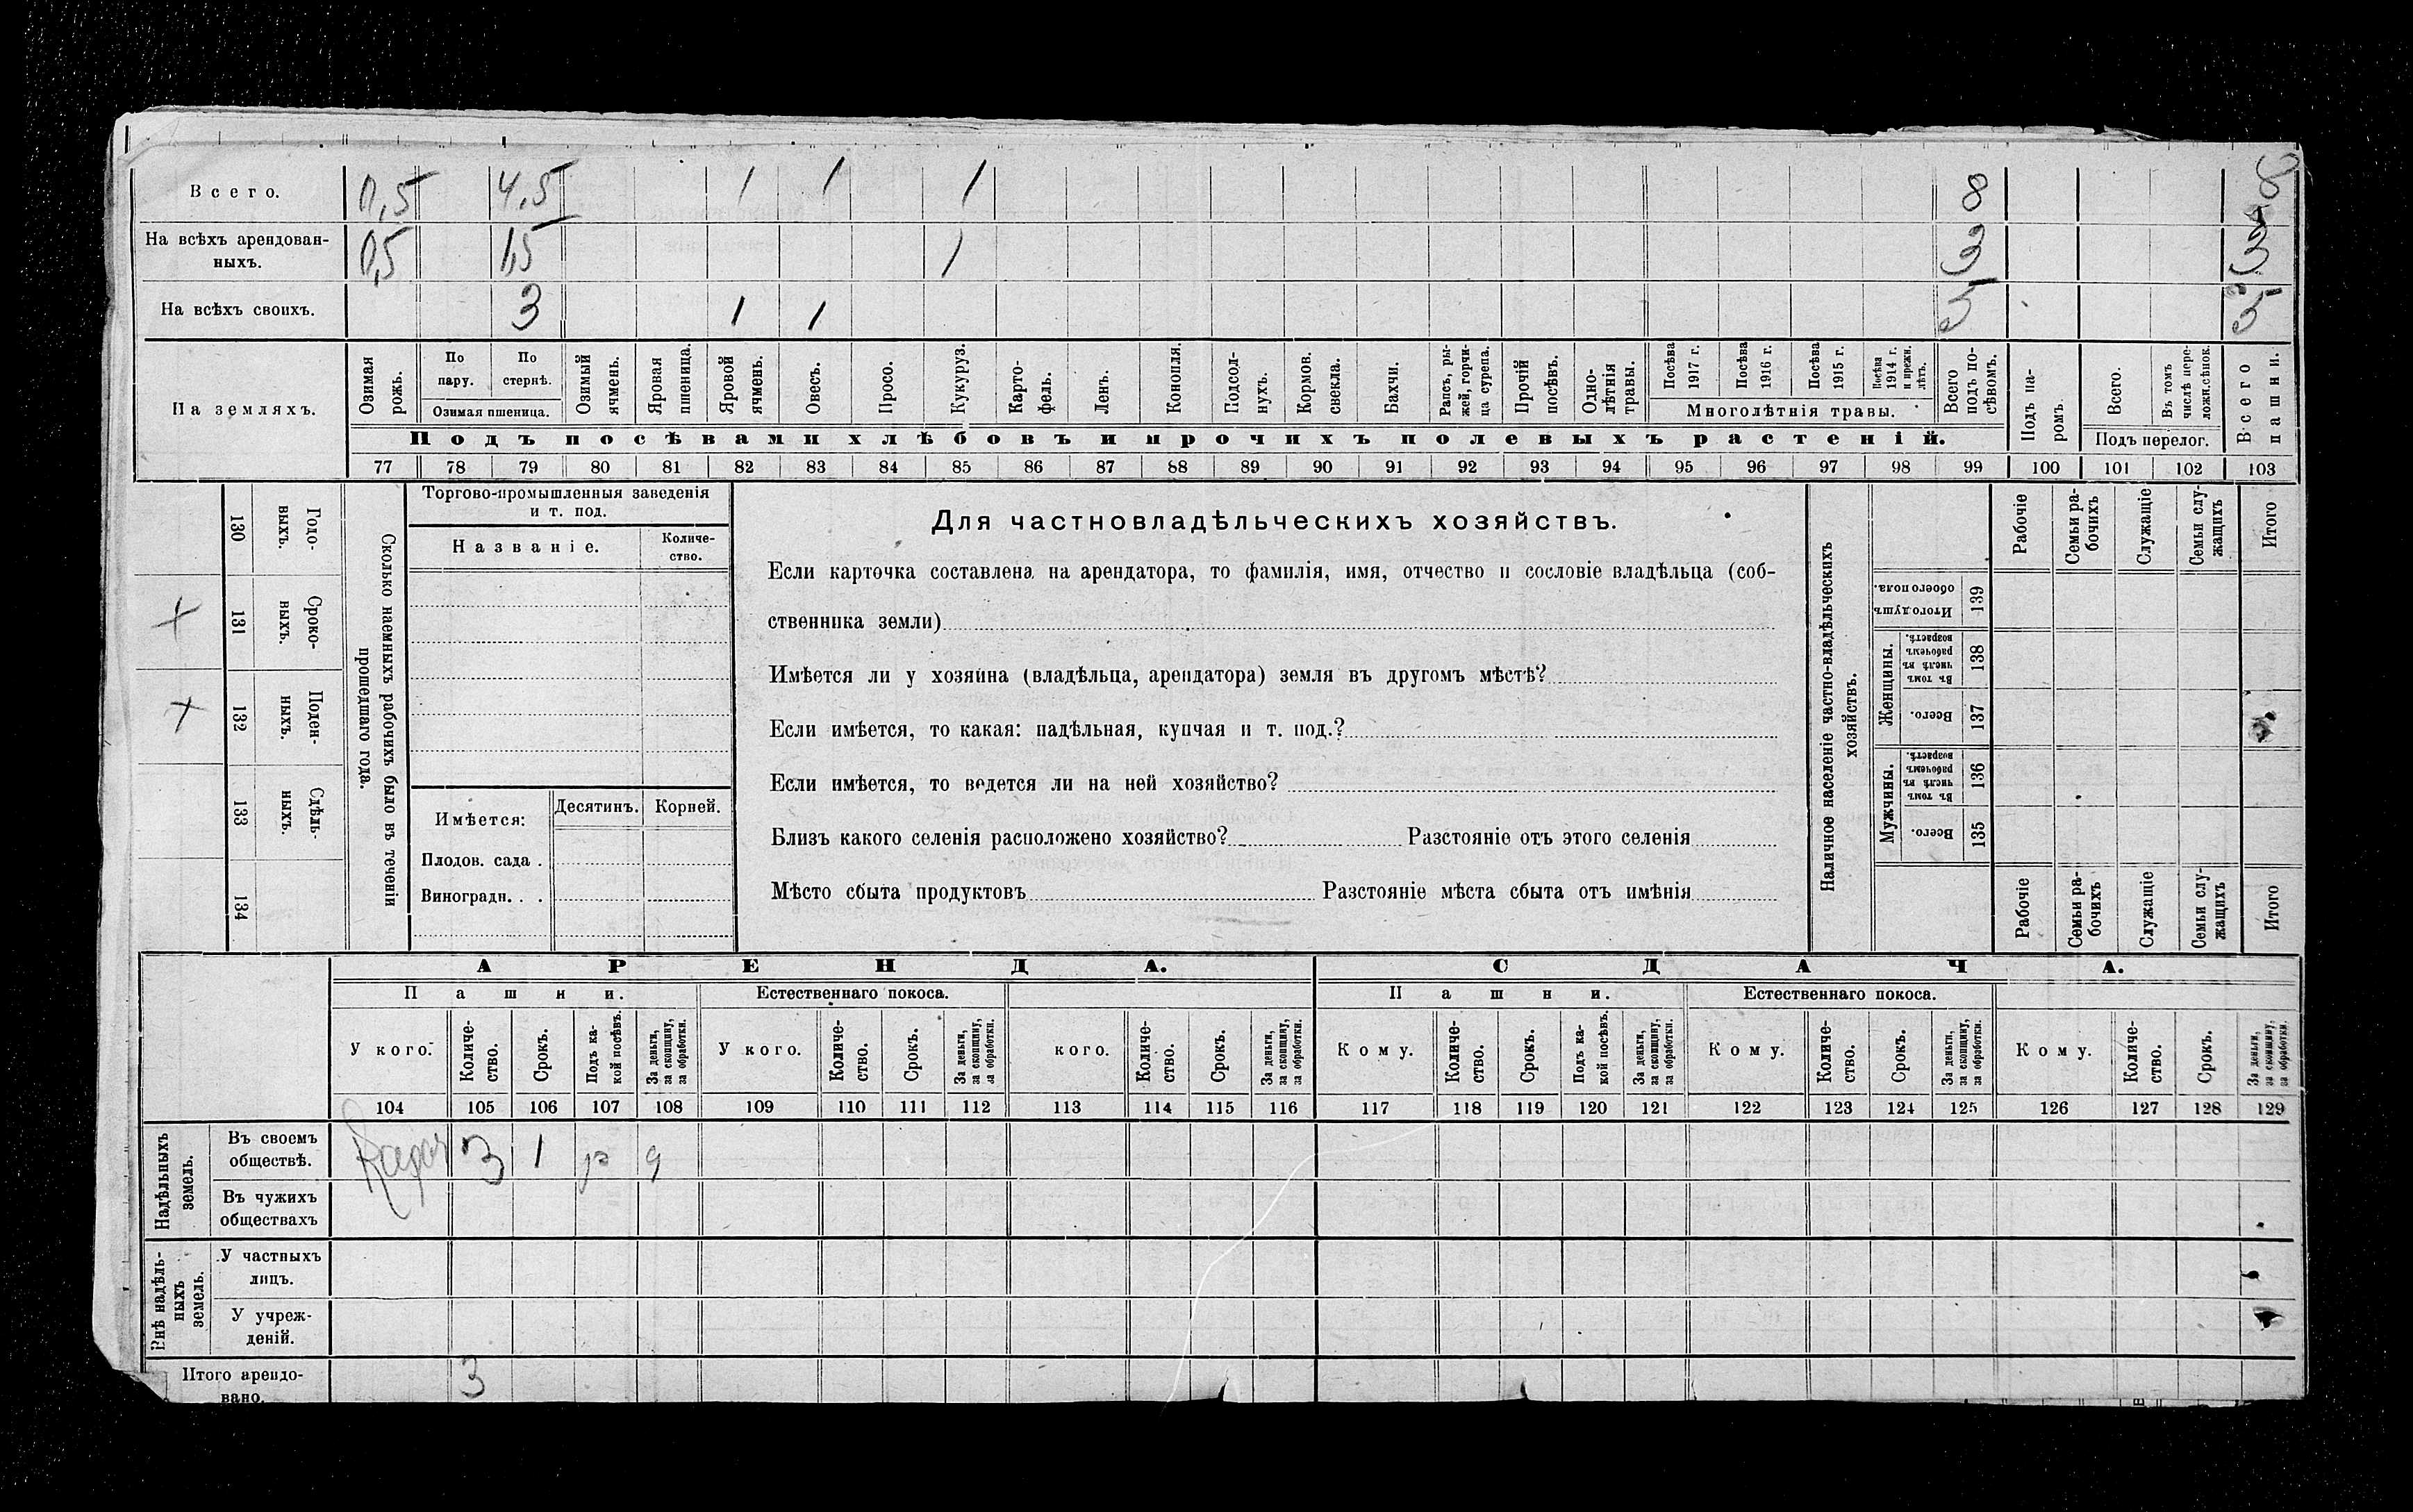 Всего. 0,5 4,5 1 1 1 8 8
На всѣхъ арендован-
ныхъ. 0,5 1,5 1 3 3
На всѣхъ своихъ. 3 1 1 5 5
На земляхъ.
Озимая рожь.
По пару.
По стернѣ.
Озимая пшеница.
Озимый ячмень.
Яровая пшеница.
Яровой ячмень.
Овесъ.
Просо.
Кукуруз.
Карто-
фель.
Ленъ.
Конопля.
Подсол-
нухъ.
Кормов. свекла.
Бахчи.
Рапсъ, ры-
жей, горчи-
ца сурепа.
Прочій посѣвъ.
Одно-
лѣтнія травы.
Посѣва 1917 г.
Посѣва 1916 г.
Посѣва 1915 г.
Посѣва 1914 г. и прежн. лѣтъ.
Многолѣтнія травы.
Всего подъ по-
сѣвомъ.
Подъ па-
ромъ.
Всего.
Въ томъ числѣ пере-
ложн.сѣнок.
Подъ перелог.
Всего пашни.
Подъ посѣвами хлѣбовъ и прочихъ полевыхъ растеній.
77 78 79 80 81 82 83 84 85 86 87 88 89 90 91 92 93 94 95 96 97 98 99 100 101 102 103
130 Годо-
выхъ.
131 Сроко-
ныхъ.
132 Поден-
ныхъ.
133 Сдѣль-
ныхъ.
134
Сколько наемныхъ рабочихъ было въ теченіи
прошедшаго года.
Торгово-промышленныя заведенія
и т. под.
Названіе.
Количе-
ство.
Имѣется:
Десятинъ. Корней.
Плодов. сада .
Виноградн. . .
Для частновладѣльческихъ хозяйствъ.
Если карточка составлена на арендатора, то фамилія, имя, отчество и сословіе владѣльца (соб-
ственника земли)
Имѣется ли у хозяина (владѣльца, арендатора) земля въ другомъ мѣстѣ?
Если имѣется, то какая: надѣльная, купчая и т. под.?
Если имѣется, то ведется ли на ней хозяйство?
Близъ какого селенія расположено хозяйство? Разстояніе отъ этого селенія
Мѣсто сбыта продуктовъ Разстояніе мѣста сбыта отъ имѣнія
Наличное населеніе частно-владѣльческихъ
хозяйствъ.
Рабочіе
Семьи ра-
бочихъ
Служащіе
Семьи слу-
жащихъ
Итого
Итого душъ обоего пола. 139
Женщины.
Въ томъ числѣ въ рабочемъ возрастѣ. 138
Всего. 137
Мужчины.
Въ томъ числѣ въ рабочемъ возрастѣ. 136
Всего. 135
Рабочіе
Семьи ра-
бочихъ
Служащіе
Семьи слу-
жащихъ
Итого
АРЕНДА. СДАЧА.
Пашни. Естественнаго покоса. Пашни. Естественнаго покоса.
У кого.
Количе-
ство.
Срокъ.
Подъ ка-
кой посѣвъ.
За деньги, за скопщину, за обработки.
У кого.
Количе-
ство.
Срокъ.
За деньги, за скопщину, за обработки.
кого.
Количе-
ство.
Срокъ.
За деньги, за скопщину, за обработки.
Кому.
Количе-
ство.
Срокъ.
Подъ ка-
кой посѣвъ.
За деньги, за скопщину, за обработки.
Кому.
Количе-
ство.
Срокъ.
За деньги, за скопщину, за обработки.
Кому.
Количе-
ство.
Срокъ.
За деньги, за скопщину, за обработки.
104 105 106 107 108 109 110 111 112 113 114 115 116 117 118 119 120 121 122 123 124 125 126 127 128 129
Надѣльныхъ
земель.
Въ своемъ
обществѣ. 3 1 р д
Въ чужихъ
обществахъ
Внѣ надѣль-
ныхъ
земель.
У частныхъ
лицъ.
У учреж-
деній.
Итого арендо-
вано. 3